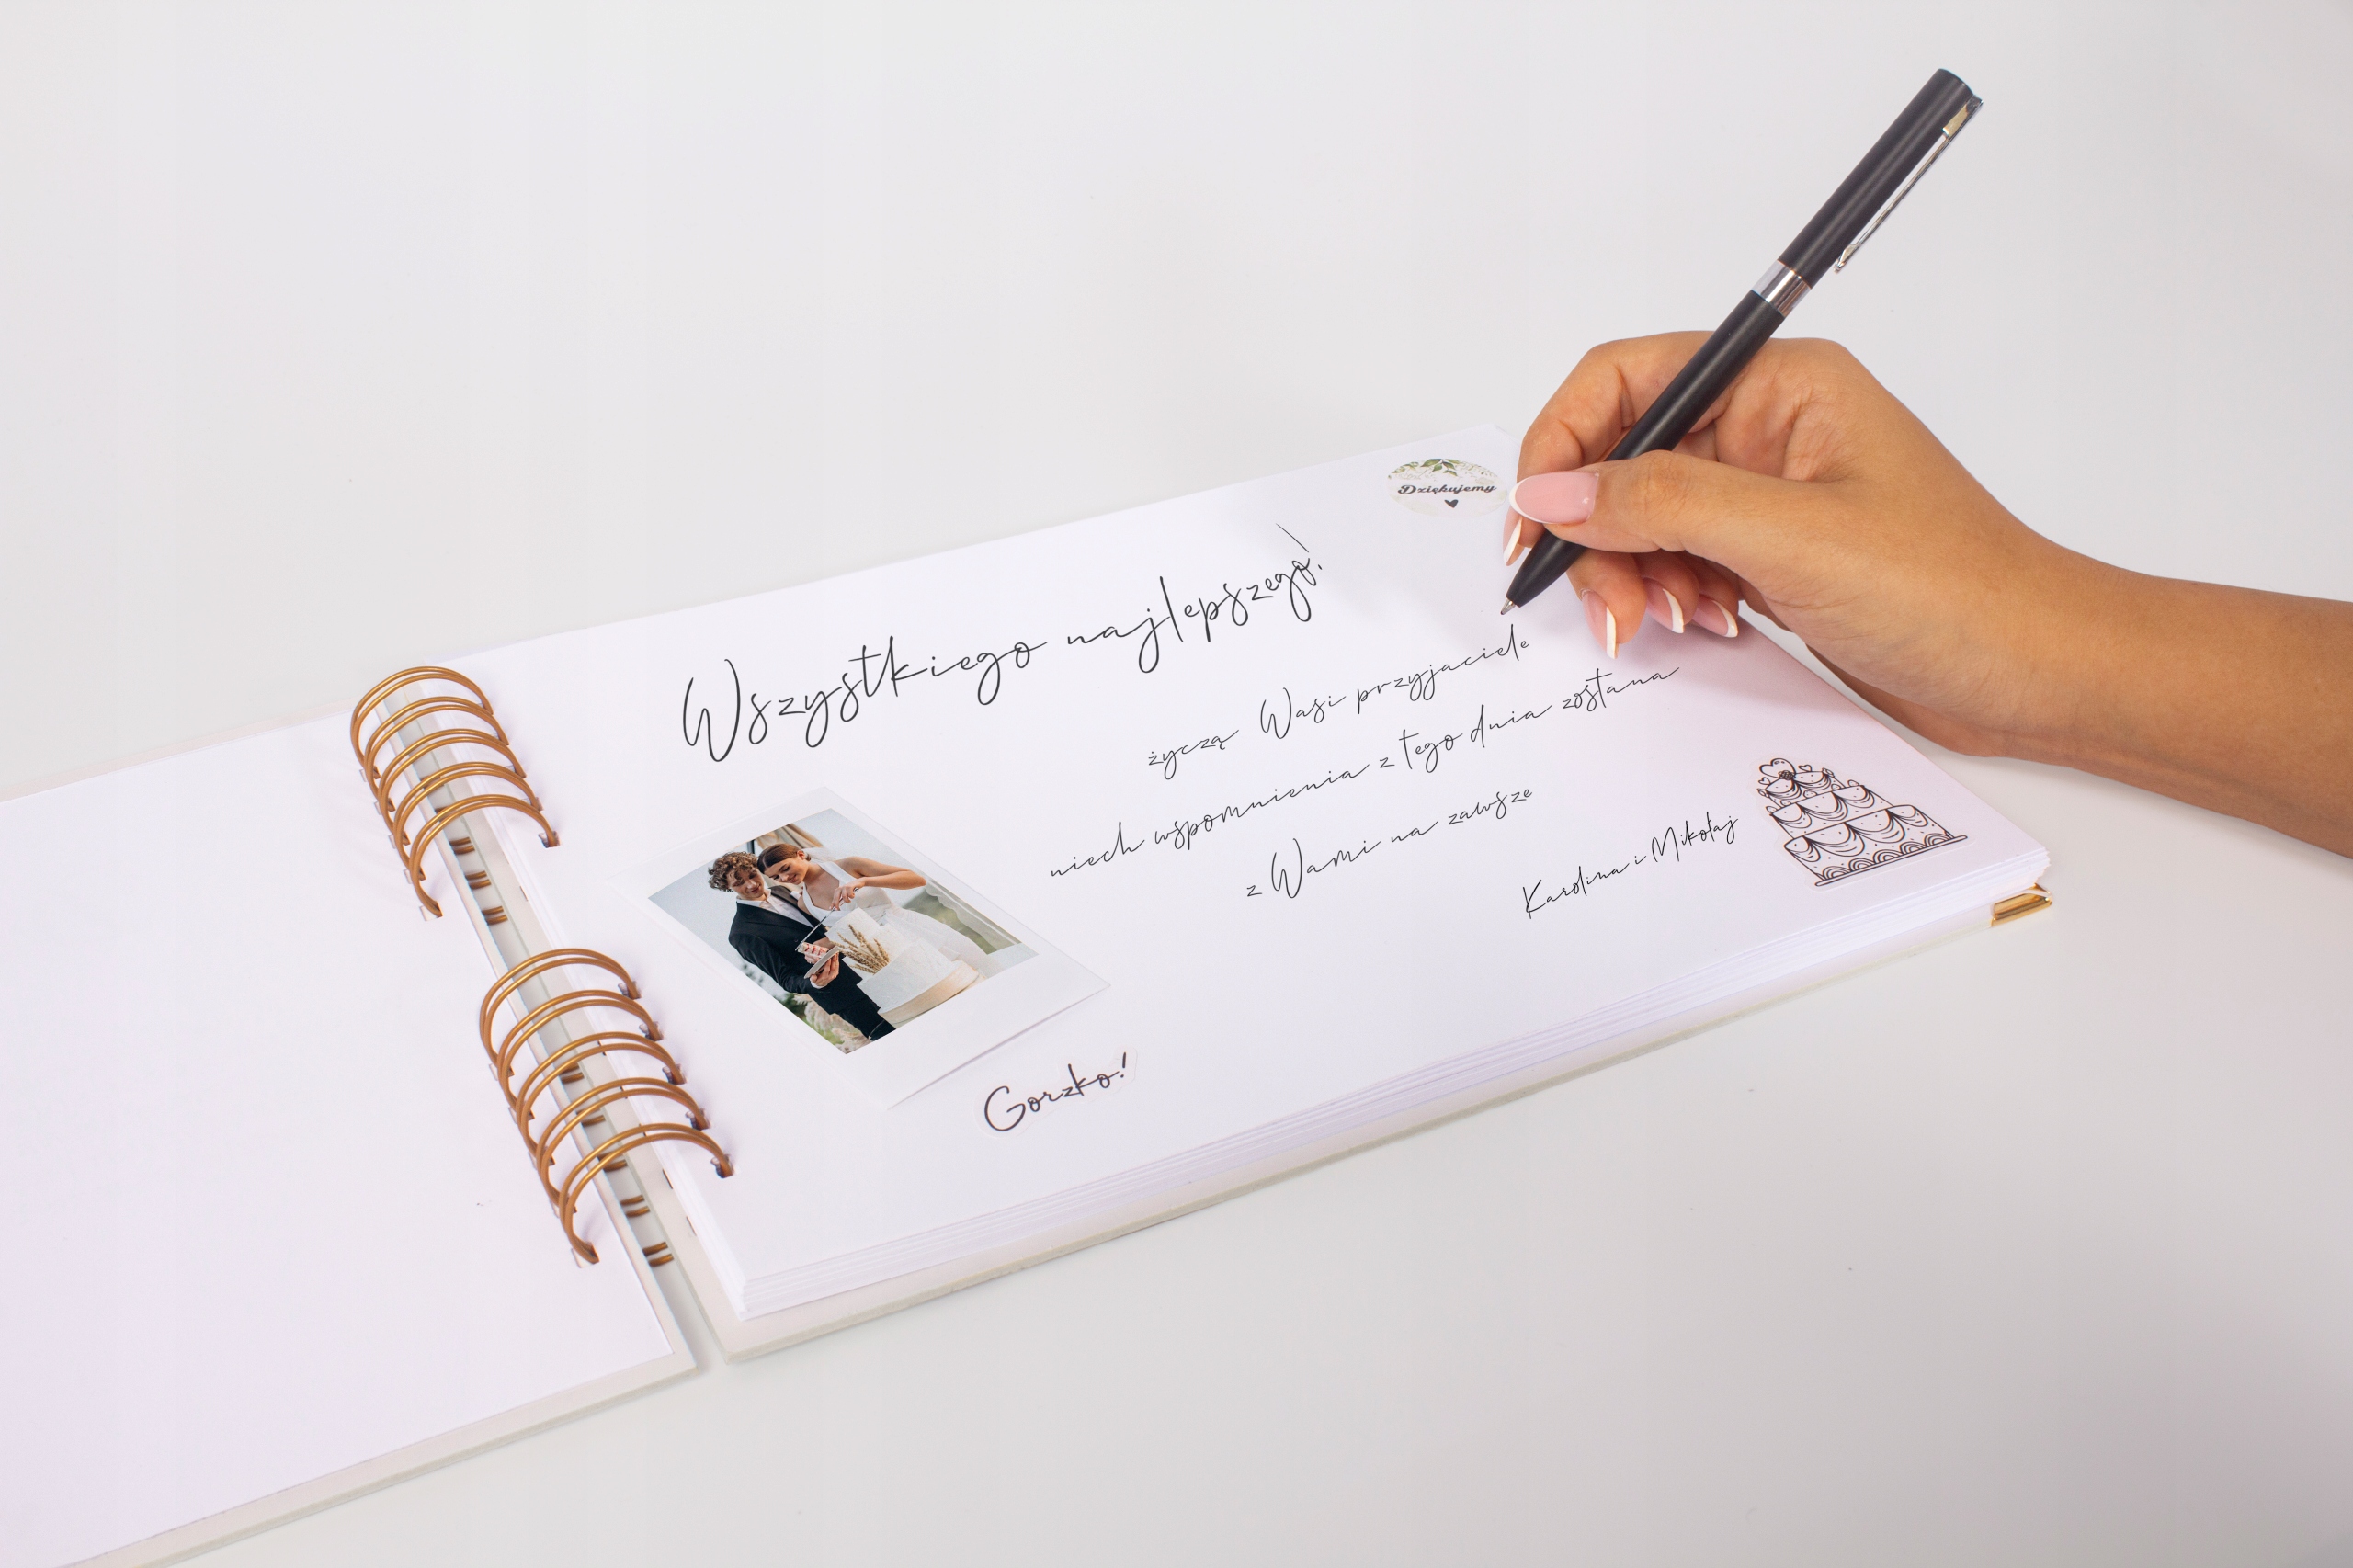 Dziękujemy
Wszystkiego najlepszego!
życzą Wasi przyjaciele
niech wspomnienia z tego dnia zostana
z Wami na zawsze
Karolina i Mikołaj
Gorzko!